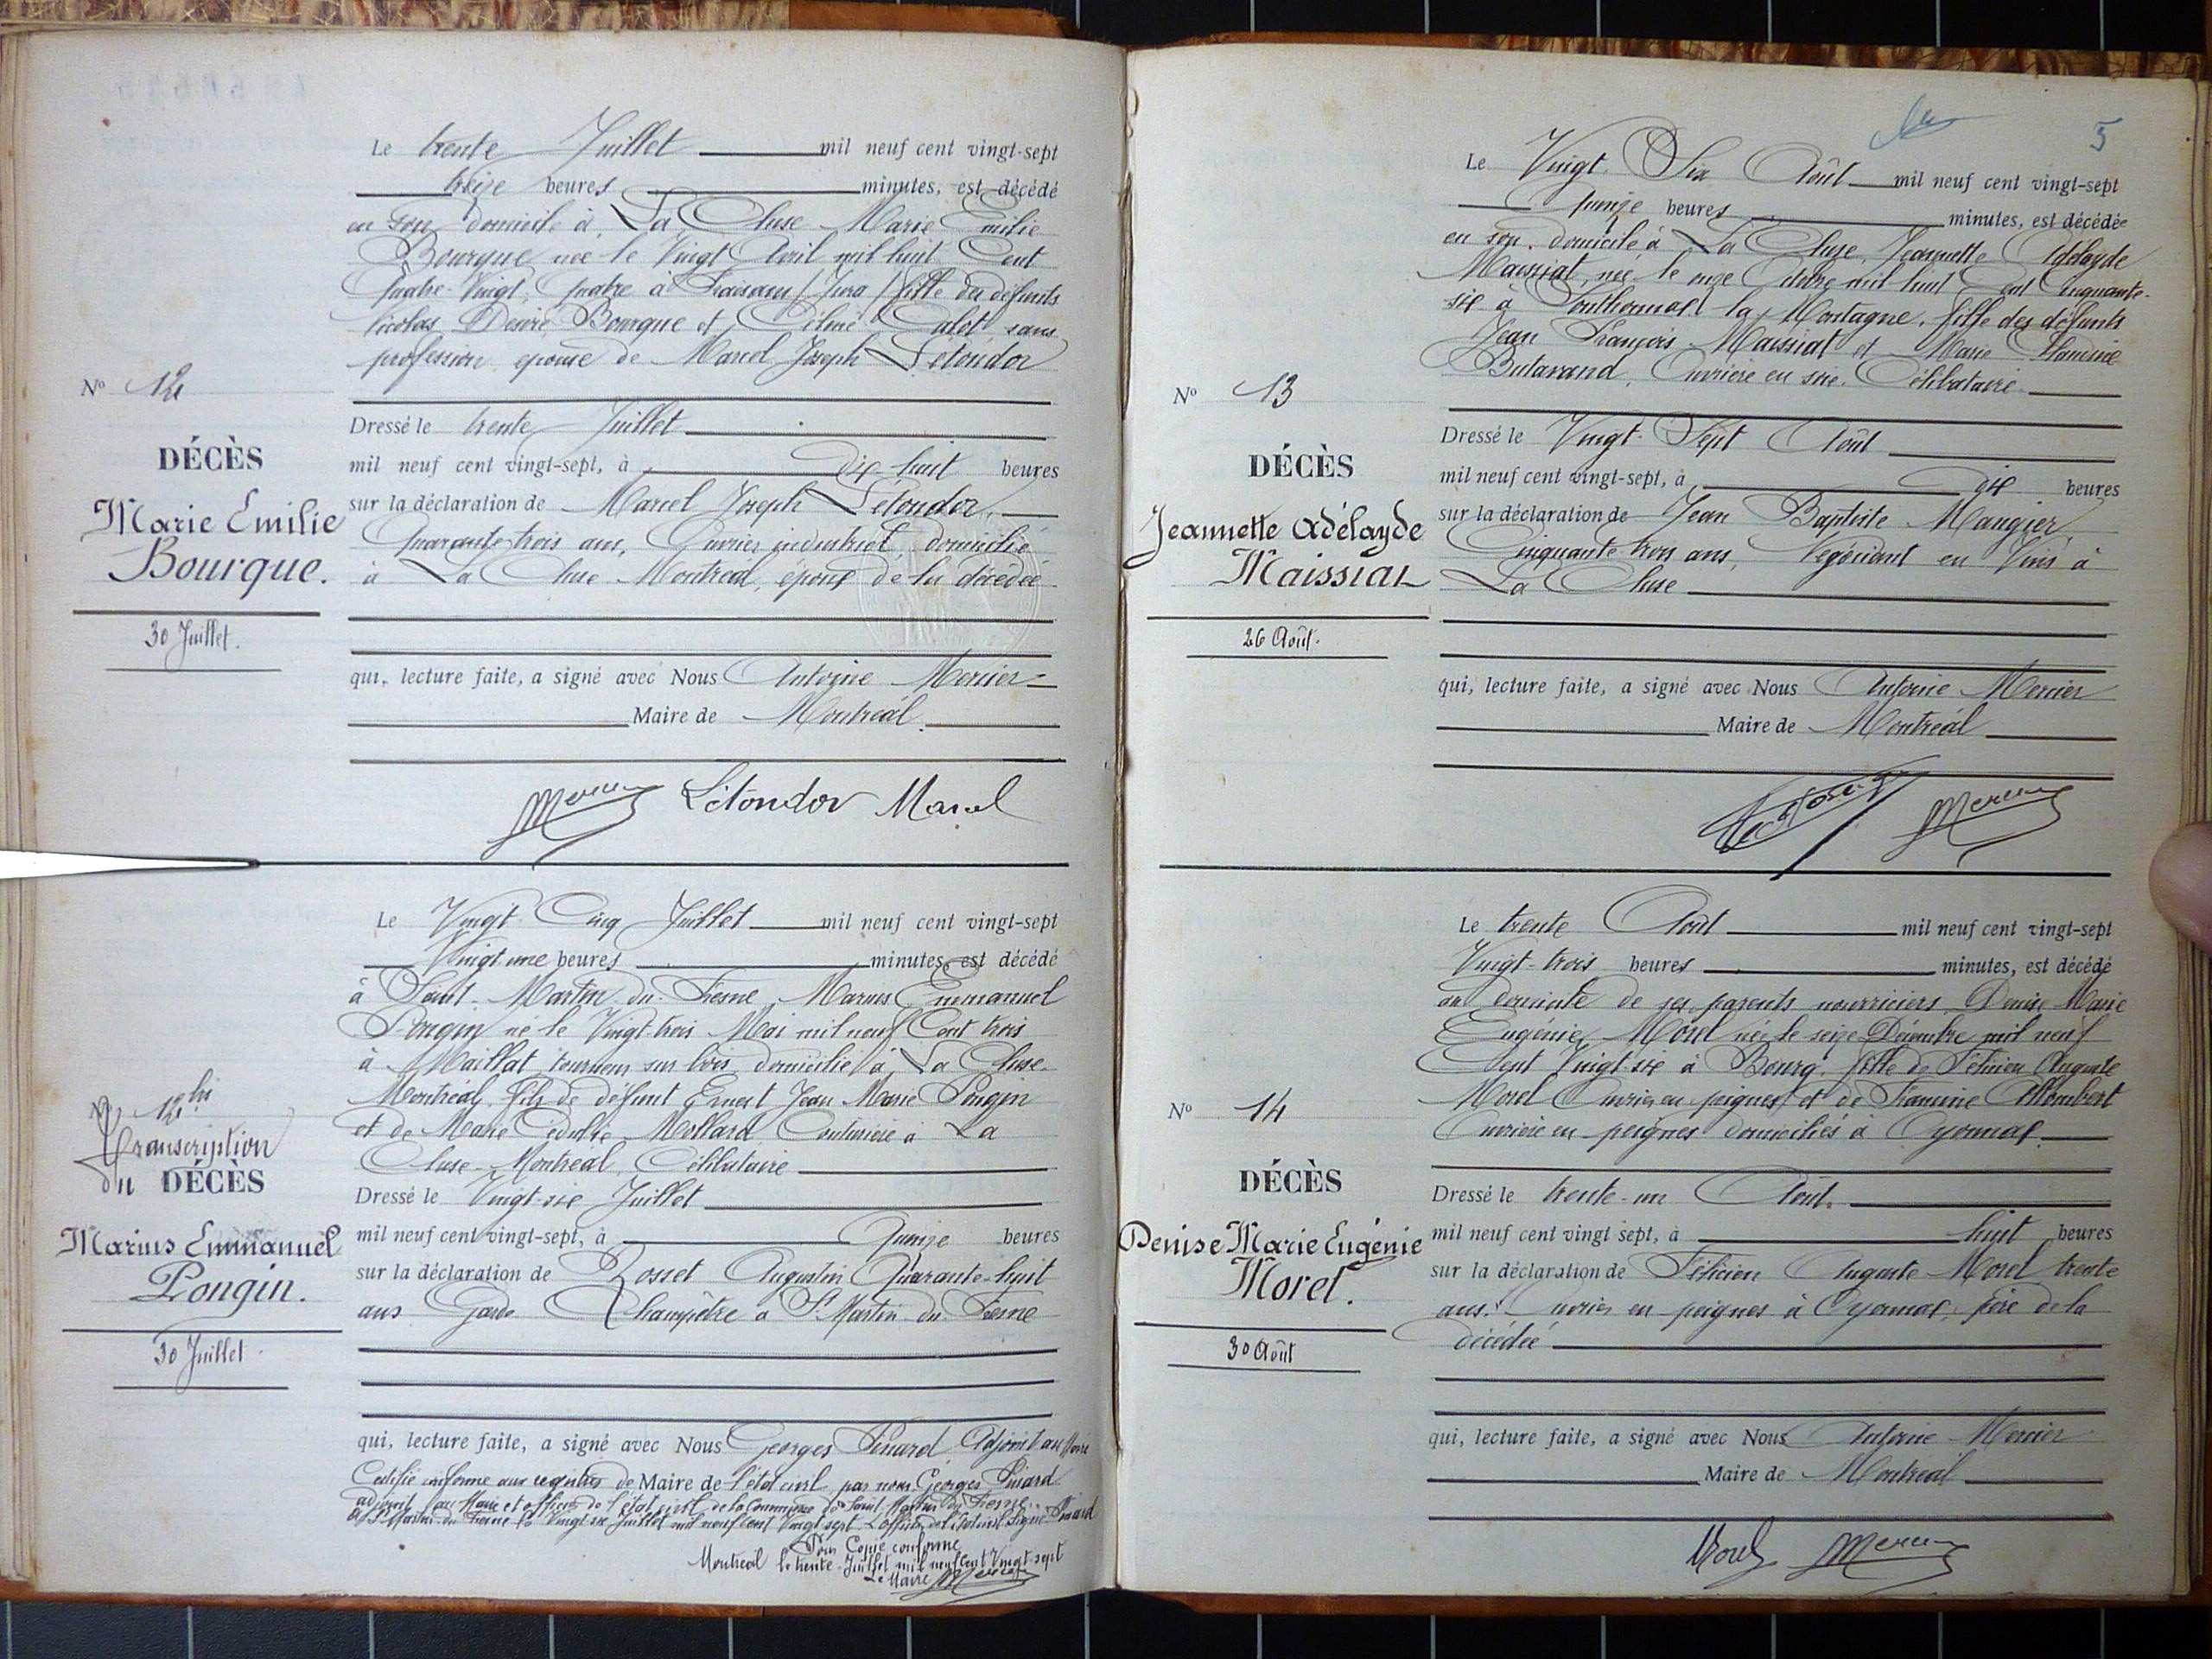 Le trente Juillet mil neuf cent vingt-sept
treize heures minutes, est décédé
en son domicile à La Cluse Marie Emilie
Bourque née le Vingt Avril mil huit Cent
quatre-Vingt, quatre à Fraisans (Jura) fille des défunts
Nicolas Désiré Bourque et Céline Calot sans
profession épouse de Marcel Joseph Létondor
N° 12
DÉCÈS
Marie Emilie
Bourque.
30 Juillet.
Dressé le trente Juillet
mil neuf cent vingt-sept, à dix huit heures
sur la déclaration de Marcel Joseph Létondor,
Quarante trois ans, Ouvrier industriel, domicilié
à La Cluse Montréal, époux de la décédée
qui, lecture faite, a signé avec Nous Antoine Mercier
Maire de Montréal.
Mercier Létondor Marcel
Le Vingt Cinq Juillet mil neuf cent vingt-sept
Vingt une heures minutes, est décédé
à Saint-Martin-du-Fresne, Marius Emmanuel
Pongin né le Vingt-trois Mai mil neuf Cent trois
à Maillat tourneur sur bois domicilié à La Cluse-
Montréal, fils de défunt Ernest Jean Marie Pongin
et de Marie Cédulie Mollard Couturière à La
Cluse-Montréal, Célibataire
N° 12 bis
Transcription
du DÉCÈS
Marius Emmanuel
Pongin.
30 Juillet.
Dressé le Vingt-six Juillet
mil neuf cent vingt-sept, à Quinze heures
sur la déclaration de Rosset Augustin Quarante-huit
ans Garde Champêtre à St Martin du Fresne
qui, lecture faite, a signé avec Nous Georges Pinard Adjoint au Maire
Certifié conforme aux registres de Maire de l'état civil par nous Georges Pinard
adjoint au Maire et officier de l'état civil de la Commune de Saint-Martin du Fresne.
A St Martin du Fresne le Vingt six Juillet mil neuf cent Vingt sept L'officier de l'état civil signé Pinard
Pour Copie conforme
Montréal le trente Juillet mil neuf cent Vingt-sept
Le Maire Mercier
5
Le Vingt Six Août mil neuf cent vingt-sept
quinze heures minutes, est décédée
en son domicile à La Cluse, Jeannette Adélayde
Maissiat, née le onze Octobre mil huit Cent Cinquante-
six à la Montagne, fille des défunts
Jean François Maissiat et Marie
Butavand, Ouvrière en soie. Célibataire
N° 13
DÉCÈS
Jeannette Adélayde
Maissiat
26 Août.
Dressé le Vingt-Sept Août
mil neuf cent vingt-sept, à dix heures
sur la déclaration de Jean Baptiste Mangier
Cinquante trois ans, Négociant en Vins à
La Cluse
qui, lecture faite, a signé avec Nous Antoine Mercier
Maire de Montréal
Mercier
Le trente Août mil neuf cent vingt-sept
Vingt-trois heures minutes, est décédé
au domicile de ses parents nourriciers Denise Marie
Eugénie Morel née le seize Décembre mil neuf
Cent Vingt-six à Bourg. fille de Félicien Auguste
Morel Ouvrier en peignes et de Framine Allombert
Ouvrière en peignes domiciliés à Oyonnax
N° 14
DÉCÈS
Denise Marie Eugénie
Morel.
30 Août
Dressé le trente-un Août
mil neuf cent vingt sept, à huit heures
sur la déclaration de Félicien Auguste Morel trente
ans. Ouvrier en peignes à Oyonnax, père de la
décédée
qui, lecture faite, a signé avec Nous Antoine Mercier
Maire de Montréal
Morel Mercier